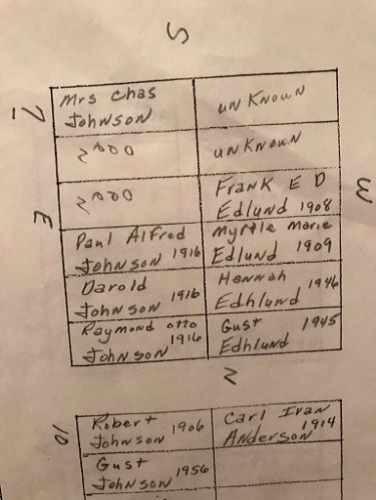 S
7
Mrs Chas
Johnson
unknown
unknown
E
W
Frank E D
Edlund 1908
Paul Alfred
Johnson 1916
Myrtle Marie
Edlund 1909
Darold
Johnson 1916
Hannah 1946
Edhlund
Raymond otto
Johnson 1916
Gust 1945
Edhlund
N
10
Robert
Johnson 1906
Carl Ivan
Anderson 1914
Gust
Johnson 1956